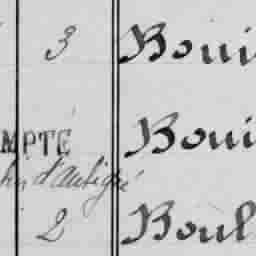 3 Boui
MPTÉ Boui
d'Aubigné
2 Boul